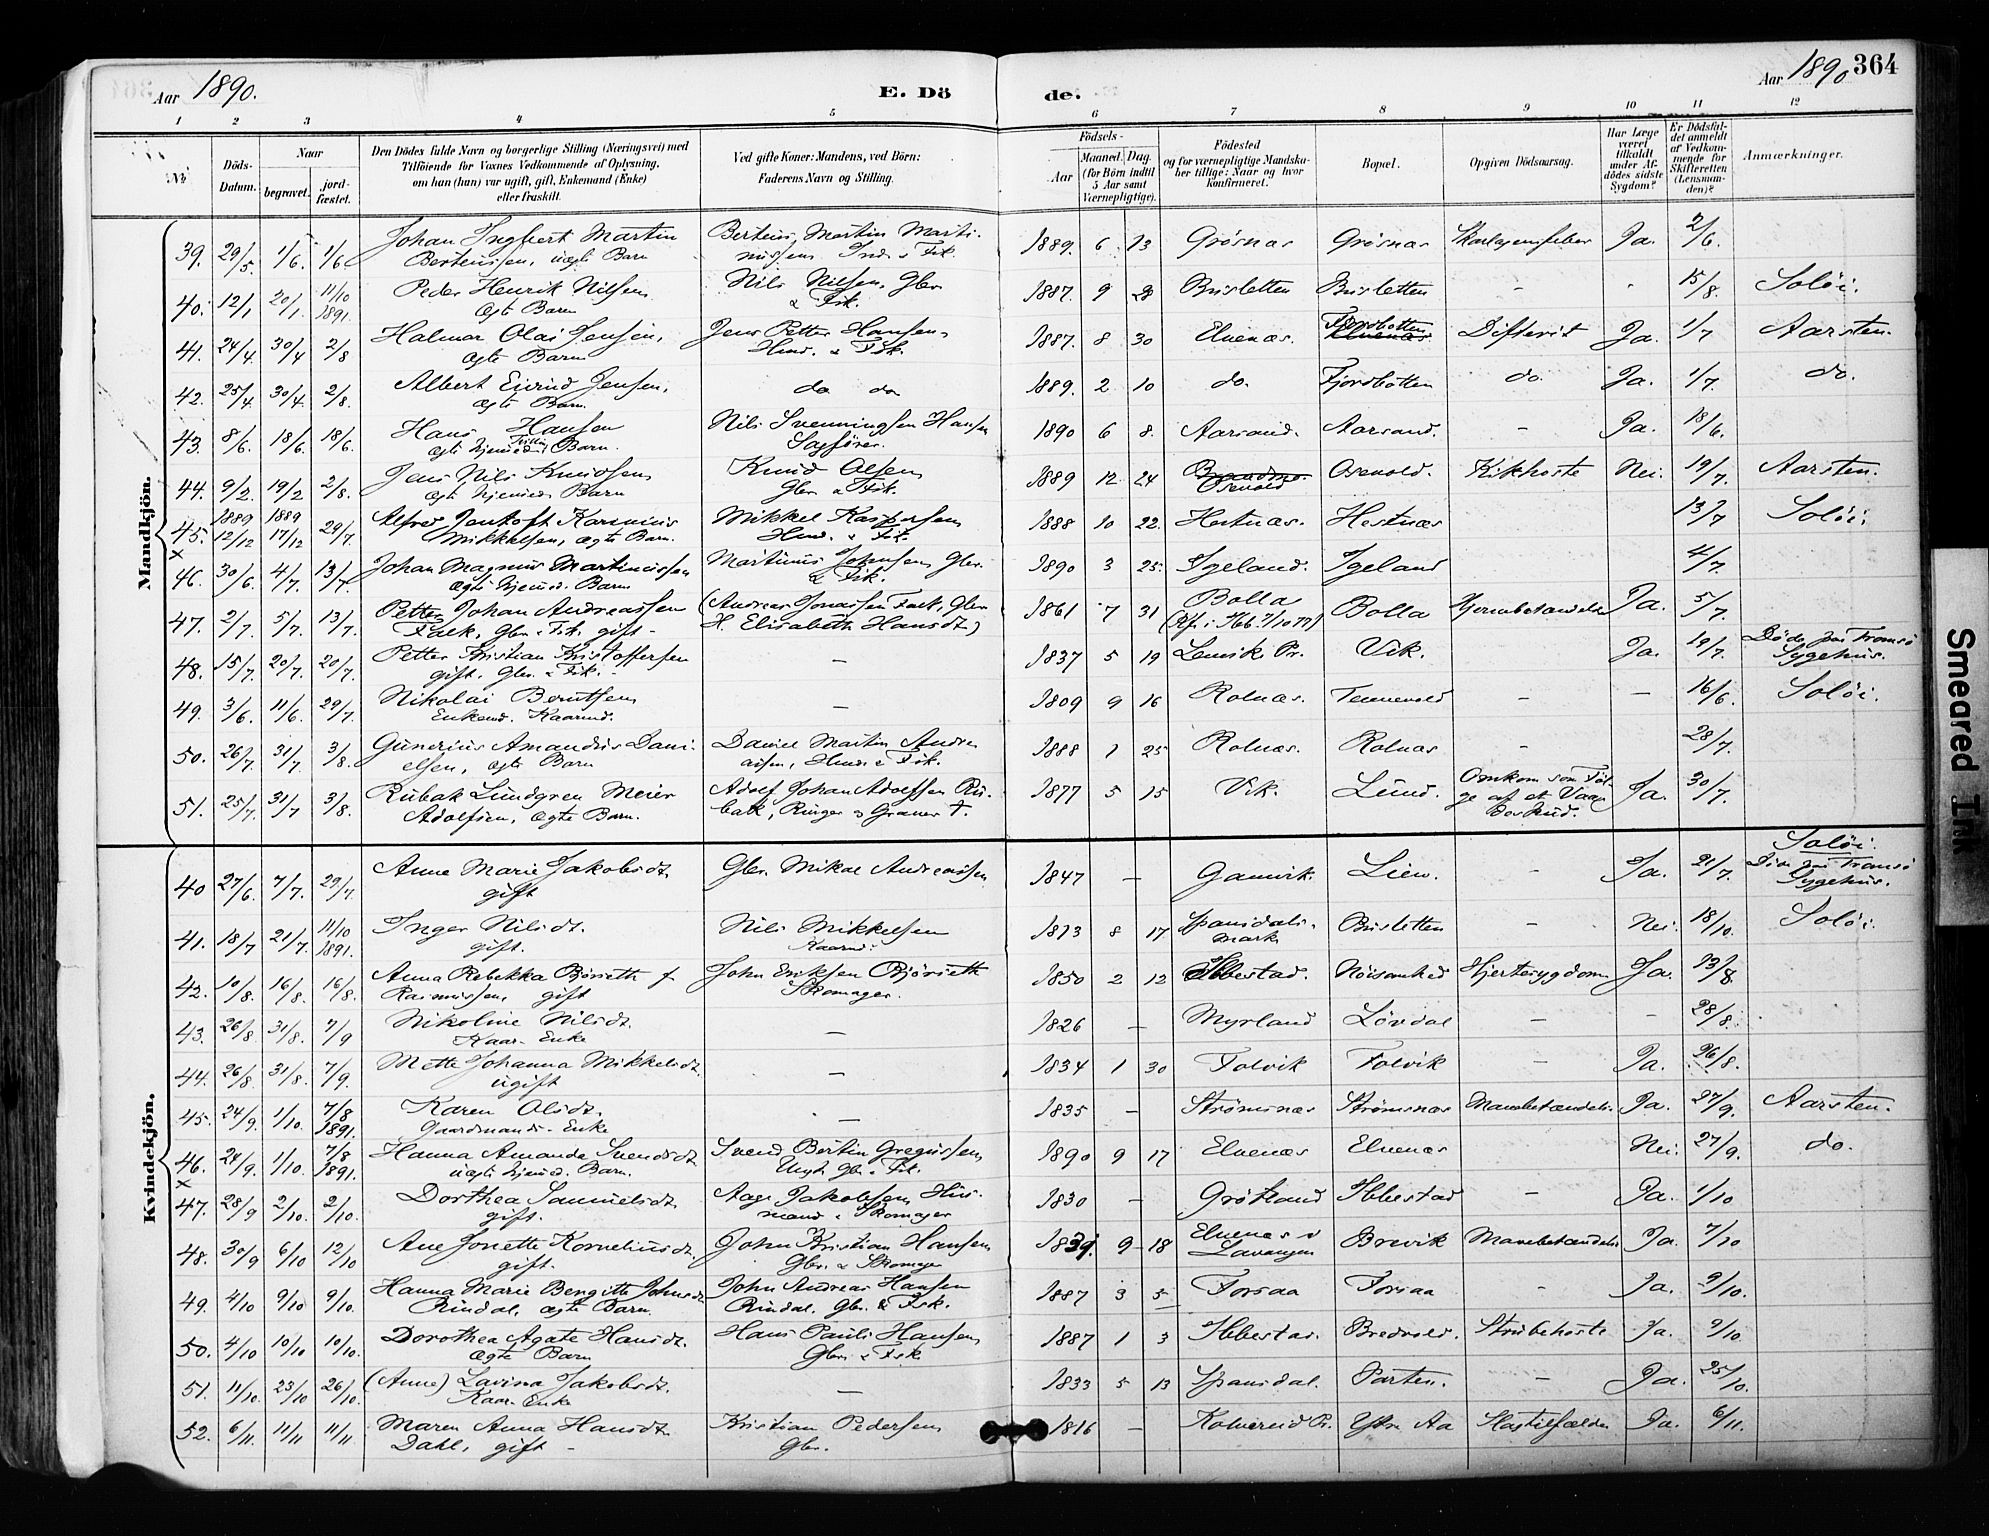 Aar 1890.
E. Dö
de.
Aar 1890
364
1 2 3 4 5 6 7 8 9 10 11 12
Nr.
Döds-Datum.
Naar
begravet.
jord-fæstet.
Den Dödes fulde Navn og borgerlige Stilling (Næringsvei) med
Tilföiende for Voxnes Vedkommende af Oplysning,
om han (hun) var ugift, gift, Enkemand (Enke)
eller fraskilt.
Ved gifte Koner: Mandens, ved Börn:
Faderens Navn og Stilling.
Födsels-
Aar
Maaned. Dag.
(for Börn indtil
5 Aar samt
Værnepligtige).
Födested
og for værnepligtige Mandska-
ber tillige: Naar og hvor
konfirmeret.
Bopæl.
Opgiven Dödsaarsag.
Har Læge
været
tilkaldt
under Af-
dödes sidste
Sygdom?
Er Dödsfal-
det anmeldt
af Vedkom-
mende for
Skifteretten
(Lensman-
den)?
Anmærkninger.
Mandkjön.
39. 29/5. 1/6. 1/6 Johan Ingbert Martin Berteussen, uægte Barn Berteus Martin Marti-nussen Ind. & Fisk. 1889. 6 13 Grøsnas Grøsnas Ja. 2/6.
40. 12/1 20/1. 11/10 1891. Peder Henrik Nilsen ægte Barn Nils Nilsen, Gbr & Fisk. 1887. 9 28 Brusletten Brusletten - 15/8. Soløi.
41. 24/4. 30/4 2/8 Halmar Olai Jensen, ægte Barn Jens Petter Hansen Husm. & Fisk. 1887. 8 30 Elvenæs. Fjordbotten Difterit Ja. 1/7 Aarsten.
42. 25/4. 30/4. 2/8. Albert Eivind Jensen, ægte Barn. do do 1889. 2 10 do. Fjordbotten do. Ja. 1/7. do.
43. 8/6. 18/6. 18/6. Hans Hansen ægte hjemmed. Tvilling Barn. Nils Svenningsen Hansen Sagfører. 1890 6 8. Aarsand. Aarsand. - Ja. 18/6.
44. 9/2. 19/2 2/8. Jens Nils Knudsen ægte hjemmed. Barn Knud Olsen Gbr & Fisk. 1889 12 24 Osevold Osevold. Kikhoste Nei. 19/7. Aarsten.
45. 1889 12/12 1889 17/12 29/7. Alfred Jentoft Karenius Mikkelsen, ægte Barn. Mikkel Kaspersen Husm. & Fisk. 1888 10 22. Hestnæs. Hestnæs 13/7 Soløi.
x
46. 30/6. 4/7. 13/7. Johan Magnus Martinussen ægte hjemmed. Barn Martinus Johnsen, Gbr. & Fisk. 1890 3 25. Igeland. Igeland 4/7.
47. 2/7. 5/7. 13/7. Petter Johan Andreassen Falk, Gbr. & Fisk. gift - (Andreas Jonassen Falk, Gbr. H. Elisabeth Hansdt.) 1861 7 31 Bolla Bolla Hjernebetændelse Ja. 5/7.
48. 15/7. 20/7. 20/7. Petter Kristian Kristoffersen gift. Gbr. & Fisk. - 1837 5 19 Lenvik Pr. Vik. Ja. 19/7. Døde paa Tromsø Sygehus.
49. 3/6. 11/6. 29/7. Nikolai Berntsen Enkemd. Kaarmd. - 1809 9 16 Rolnæs. Tennevold - - 16/6. Soløi.
50. 26/7. 31/7. 3/8. Gunerius Amandus Dani-elsen, ægte Barn Daniel Martin Andre-assen, Husm. & Fisk. 1888 1 25 Rolnæs. Rolnæs - 28/7.
51. 25/7. 31/7 3/8. Rubak Lundgren Meier Adolfsen, ægte Barn. Adolf Johan Adolfsen Ru-bak, Ringer & Graver †. 1877 5 15 Vik. Lund. Omkom som Føl-ge af et Vaa-deskud. Ja. 30/7.
Kvindekjön.
40 27/6. 7/7. 29/7. Anne Marie Jakobsdt. gift Gbr. Mikal Andreassen 1847 - Gamvik. Lien. - Ja. 21/7. Soløi. Døde paa Tromsø Sygehus.
41. 18/7 21/7. 11/10 1891. Inger Nilsdt. gift. Nils Mikkelsen Kaarmd. 1813 8 17 Spansdals-mark. Brusletten - Nei. 18/10. Soløi.
42. 10/8. 16/8. 16/8. Anna Rebekka Bjørseth f Rasmussen, gift John Eriksen Bjørseth Skomager. 1850 2 12 Ibbestad. Nøisomhed Hjertesygdom Ja. 13/8.
43. 26/8 31/8. 7/9 Nikoline Nilsdt. Kaar-Enke - 1826 - Myrland Løvdal - - 28/8.
44. 26/8. 31/8. 7/9. Mette Johanna Mikkelsdt. ugift - 1834 1 30 Folvik Folvik - Ja. 26/8.
45. 24/9. 1/10. 7/8 1891. Karen Olsdt. Gaardmands-Enke - 1835 - Strømsnæs Strømsnæs Mavebetændelse. Ja. 27/9. Aarsten.
46. 24/9. 1/10. 7/8 1891. Hanna Amanda Svendsdt. uægte hjemmed. Barn. Svend Bertin Gregussen Ungk. Gbr. & Fisk. 1890 9 17 Elvenæs Elvenæs Nei. 27/9. do.
x
47. 28/9 2/10. 2/10. Dorthea Samuelsdt. gift. Aage Jakobsen, Hus-mand & Skomager 1830 - Grøtland Ibbestad - Ja. 1/10
48. 30/9 6/10 12/10 Ane Jonette Korneliusdt. gift. John Kristian Hansen Gbr. & Skomager 1839. 9 18 Elvenæs i Lavangen Brevik Mavebetændelse Ja. 7/10
49. 4/10 9/10 9/10. Hanna Marie Bergitte Johnsdt. Rindal, ægte Barn John Andreas Hansen Rindal. Gbr. & Fisk. 1887 3 5 Forsaa Forsaa - Ja. 9/10.
50. 4/10 10/10 10/10. Dorothea Agate Hansdt. ægte Barn Hans Pauli Hansen Gbr. & Fisk 1887 1 3 Ibbestad. Bredvold. Strubehoste Ja. 9/10.
51. 11/10. 23/10 26/10. (Anne) Lavina Jakobsdt. Kaar-Enke - 1833 5 13 Spansdal. Parten. - Ja. 25/10.
52. 6/11. 11/11 11/11 Maren Anna Hansdt. Dahl, gift - Kristian Pedersen Gbr. 1816 - Kolvereid Pr. Ytre Aa Slagtilfælde Ja. 6/11.
Smeared Ink